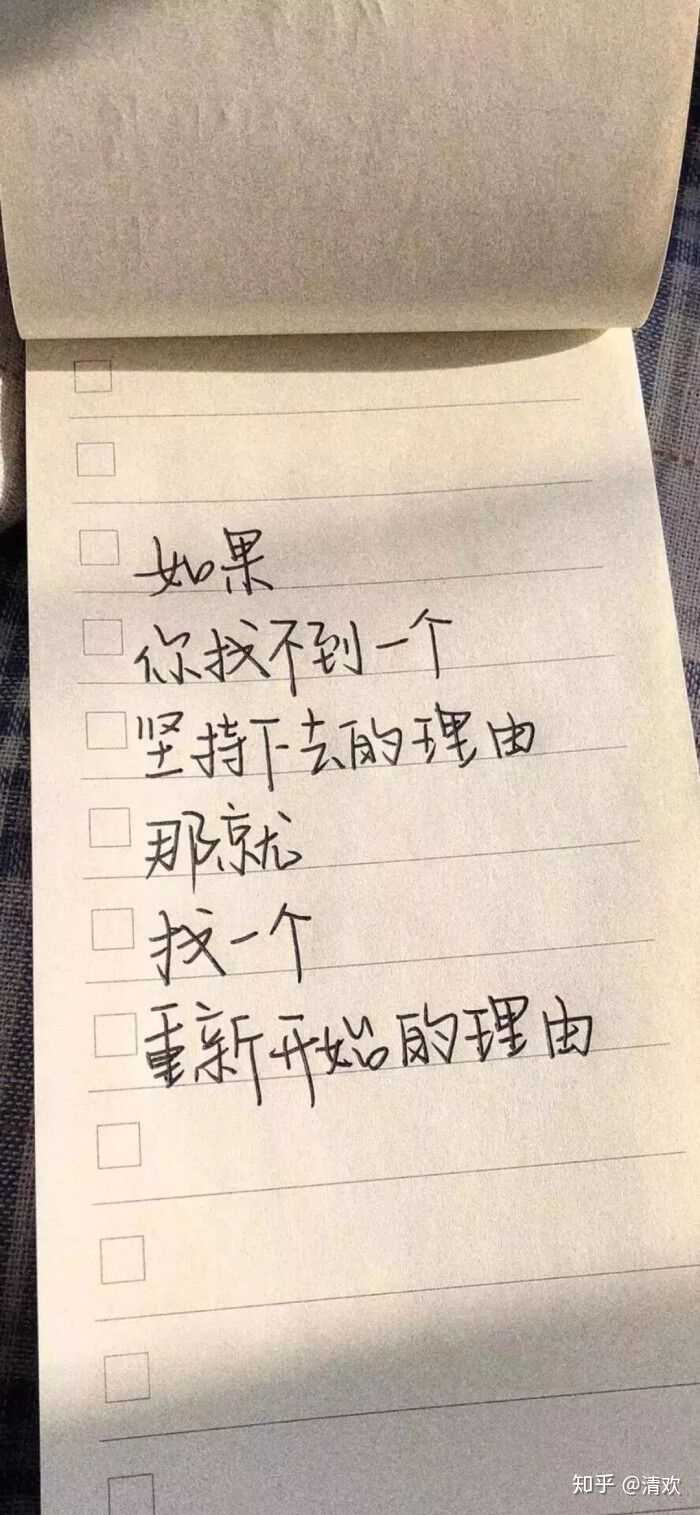 如果
你找不到一个
坚持下去的理由
那就
找一个
重新开始的理由
知乎 @清欢